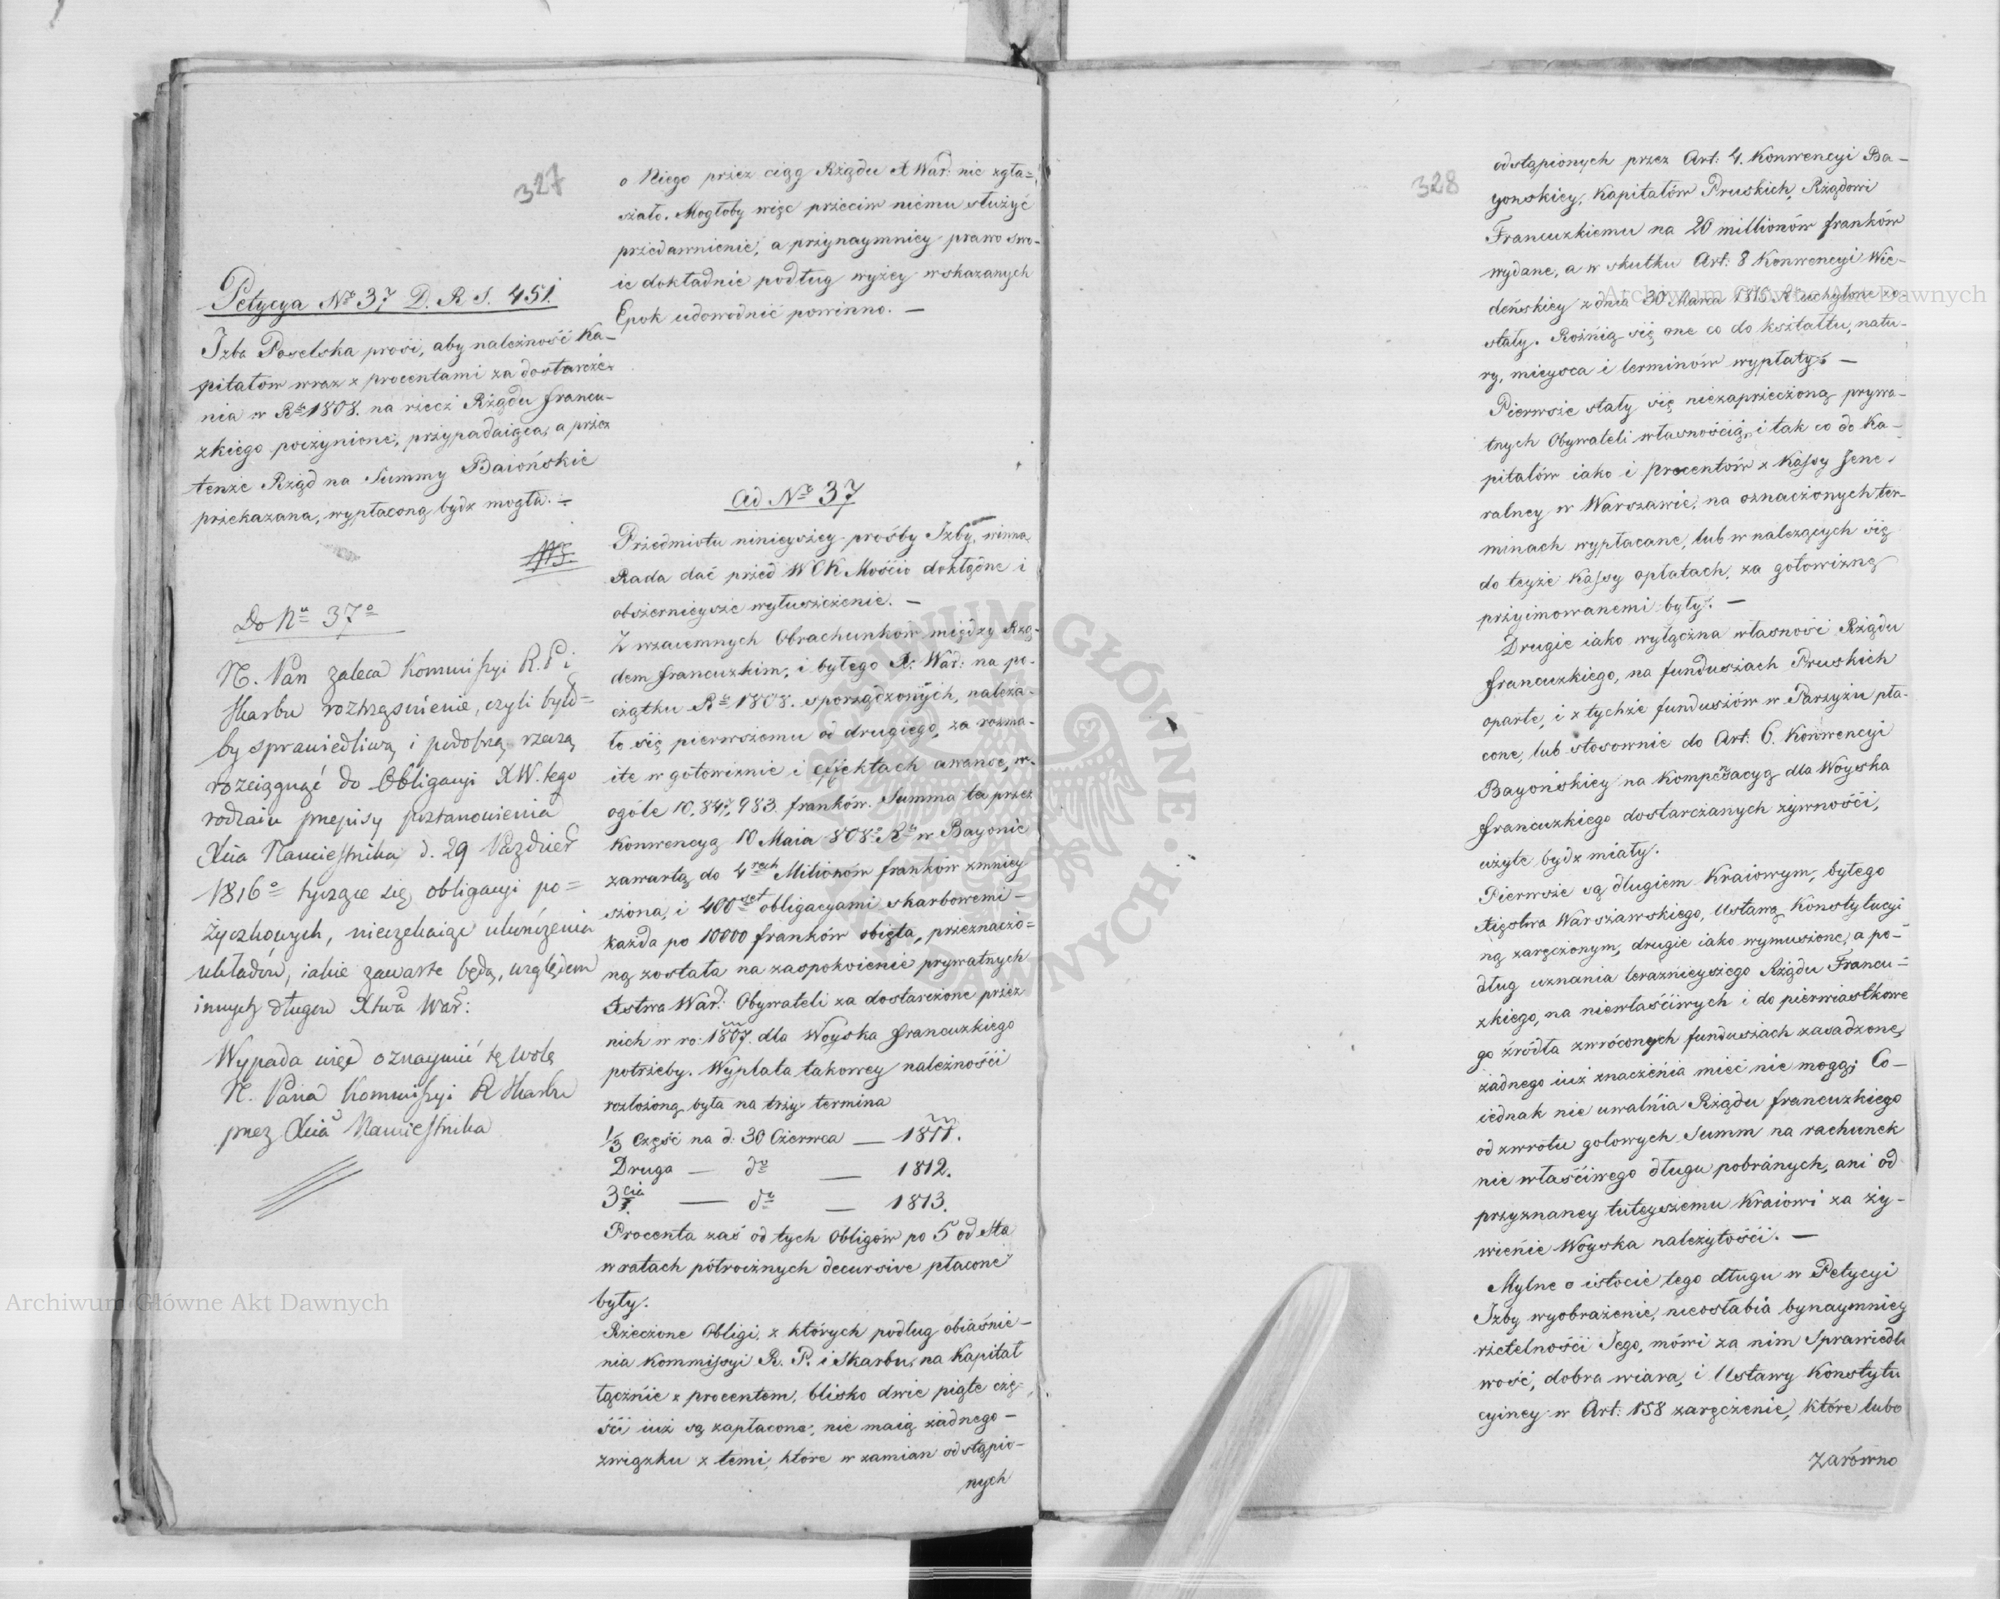 327
Petycya Nº 37 D. R. S. 451.
Izba Poselska prosi, aby należność Ka-
pitałow wraz z procentami za dostarcze-
nia w Rº 1808. na rzecz Rządu francu-
zkiego poczynione, przypadaiąca, a przez
tenże Rząd na Summy Baiońskie
przekazana, wypłaconą bydź mogła. -
Do Nu 37º
N. Pan zaleca Kommissyi R. P. i
Skarbu roztrząśnienie, czyli było=
by sprawiedliwą i podobną rzeczą
rozciągnąć do Obligacyi X W. tego
rodzaiu przepisy postanowienia
Xcia Namiestnika d. 29 Paździer
1816º tyczące się obligacyi po=
życzkowych, nieczekaiąc ukończenia
układow, iakie zawarte będą, względem
innych długow Xtwa War:
Wypada więc oznaymić tę wolę
N. Pana Kommissyi R Skarbu
przez Xcia Namiestnika
o Niego przez ciąg Rządu X War: nie zgła=
szało. Mogłoby więc przeciw niemu służyć
przedawnienie, a przynaymniey prawo swo-
ie dokładnie podług wyżey wskazanych
Epok udowodnić powinno. -
Ad Nº 37
Przedmiotu ninieyszey prośby Izby, winna
Rada dać przed WCK Mością dokłądne i
obszernieysze wytłuszczenie. -
Z wzaiemnych Obrachunkow między Rzą-
dem francuzkim, i byłego X: War: na po-
czątku Rº 1808. sporządzonych, należa-
ło się pierwszemu od drugiego, za rozma-
ite w gotowiznie i effektach awanse, w
ogóle 10,847,983. franków. Summa ta przez
Konwencyą 10 Maia 808º Rº w Bayonie
zawartą do 4rech Milionów franków zmniey
szona, i 400set obligacyami skarbowemi -
każda po 10000 franków obięta, przeznaczo=
ną została na zaspokoienie prywatnych
Xstwa War: Obywateli za dostarczone przez
nich w ro: 1807. dla Woyska francuzkiego
potrzeby. Wypłata takowey należności
rozłożoną była na trzy termina
1/3 Część na d: 30 Czerwca — 1811.
Druga — dº — 1812.
3cia — dº — 1813.
Procenta zaś od tych Obligów po 5 od Sta
w ratach półrocznych decursive płacone
były.
Rzeczone Obligi, z których podług obiaśnie-
nia Kommissyi R. P. i Skarbu, na Kapitał
łącznie z procentem, blisko dwie piąte czę-
ści iuż są zapłacone, nie maią żadnego -
związku z temi, które w zamian odstąpio-
nych
328
odstąpionych przez Art: 4. Konwencyi Ba-
yonskiey, Kapitałów Pruskich, Rządowi
Francuzkiemu na 20 millionów franków
wydane, a w skutku Art: 8 Konwencyi Wie-
deńskiey z dnia 30 Marca 1815. Rº uchylone zo-
stały. Rożnią się one co do kształtu, natu-
ry, mieysca i terminów wypłaty. -
Pierwsze stały się niezaprzeczoną prywa-
tnych Obywateli własnością, i tak co do Ka-
pitałów iako i procentów z Kassy Jene-
ralney w Warszawie, na oznaczonych ter-
minach wypłacane, lub w nalezących się
do teyże Kassy opłatach, za gotowiznę
przyimowanemi były. -
Drugie iako wyłączna własność Rządu
francuzkiego, na funduszach Pruskich
oparte, i z tychże funduszów w Paryżu pła-
cone, lub stosownie do Art: 6. Konwencyi
Bayońskiey na Kompensacyą dla Woyska
francuzkiego dostarczanych żywności,
użyte bydź miały.
Pierwsze są długiem Kraiowym, byłego
Xięstwa Warszawskiego, Ustawą Konstytucyi
ną zaręczonym, drugie iako wymuszone, a po-
dług uznania teraznieyszego Rządu Francu-
zkiego, na niewłaściwych i do pierwiastkowe
go źródła zwróconych funduszach zasadzone,
żadnego iuż znaczenia mieć nie mogą; Co-
iednak nie uwalnia Rządu francuzkiego
od zwrotu gotowych Summ na rachunek
nie właściwego długu pobranych, ani od
przyznaney tuteyszemu Kraiowi za ży-
wienie Woyska należytości. -
Mylne o istocie tego długu w Petycyi
Izby wyobrażenie, nieosłabia bynaymniey
rzetelności Jego, mówi za nim Sprawiedli
wość, dobra wiara, i Ustawy Konstytu
cyiney w Art: 158 zaręczenie, które lubo
zarówno
Archiwum Główne Akt Dawnych
Archiwum Główne Akt Dawnych
ARCHIWUM GŁÓWNE AKT DAWNYCH